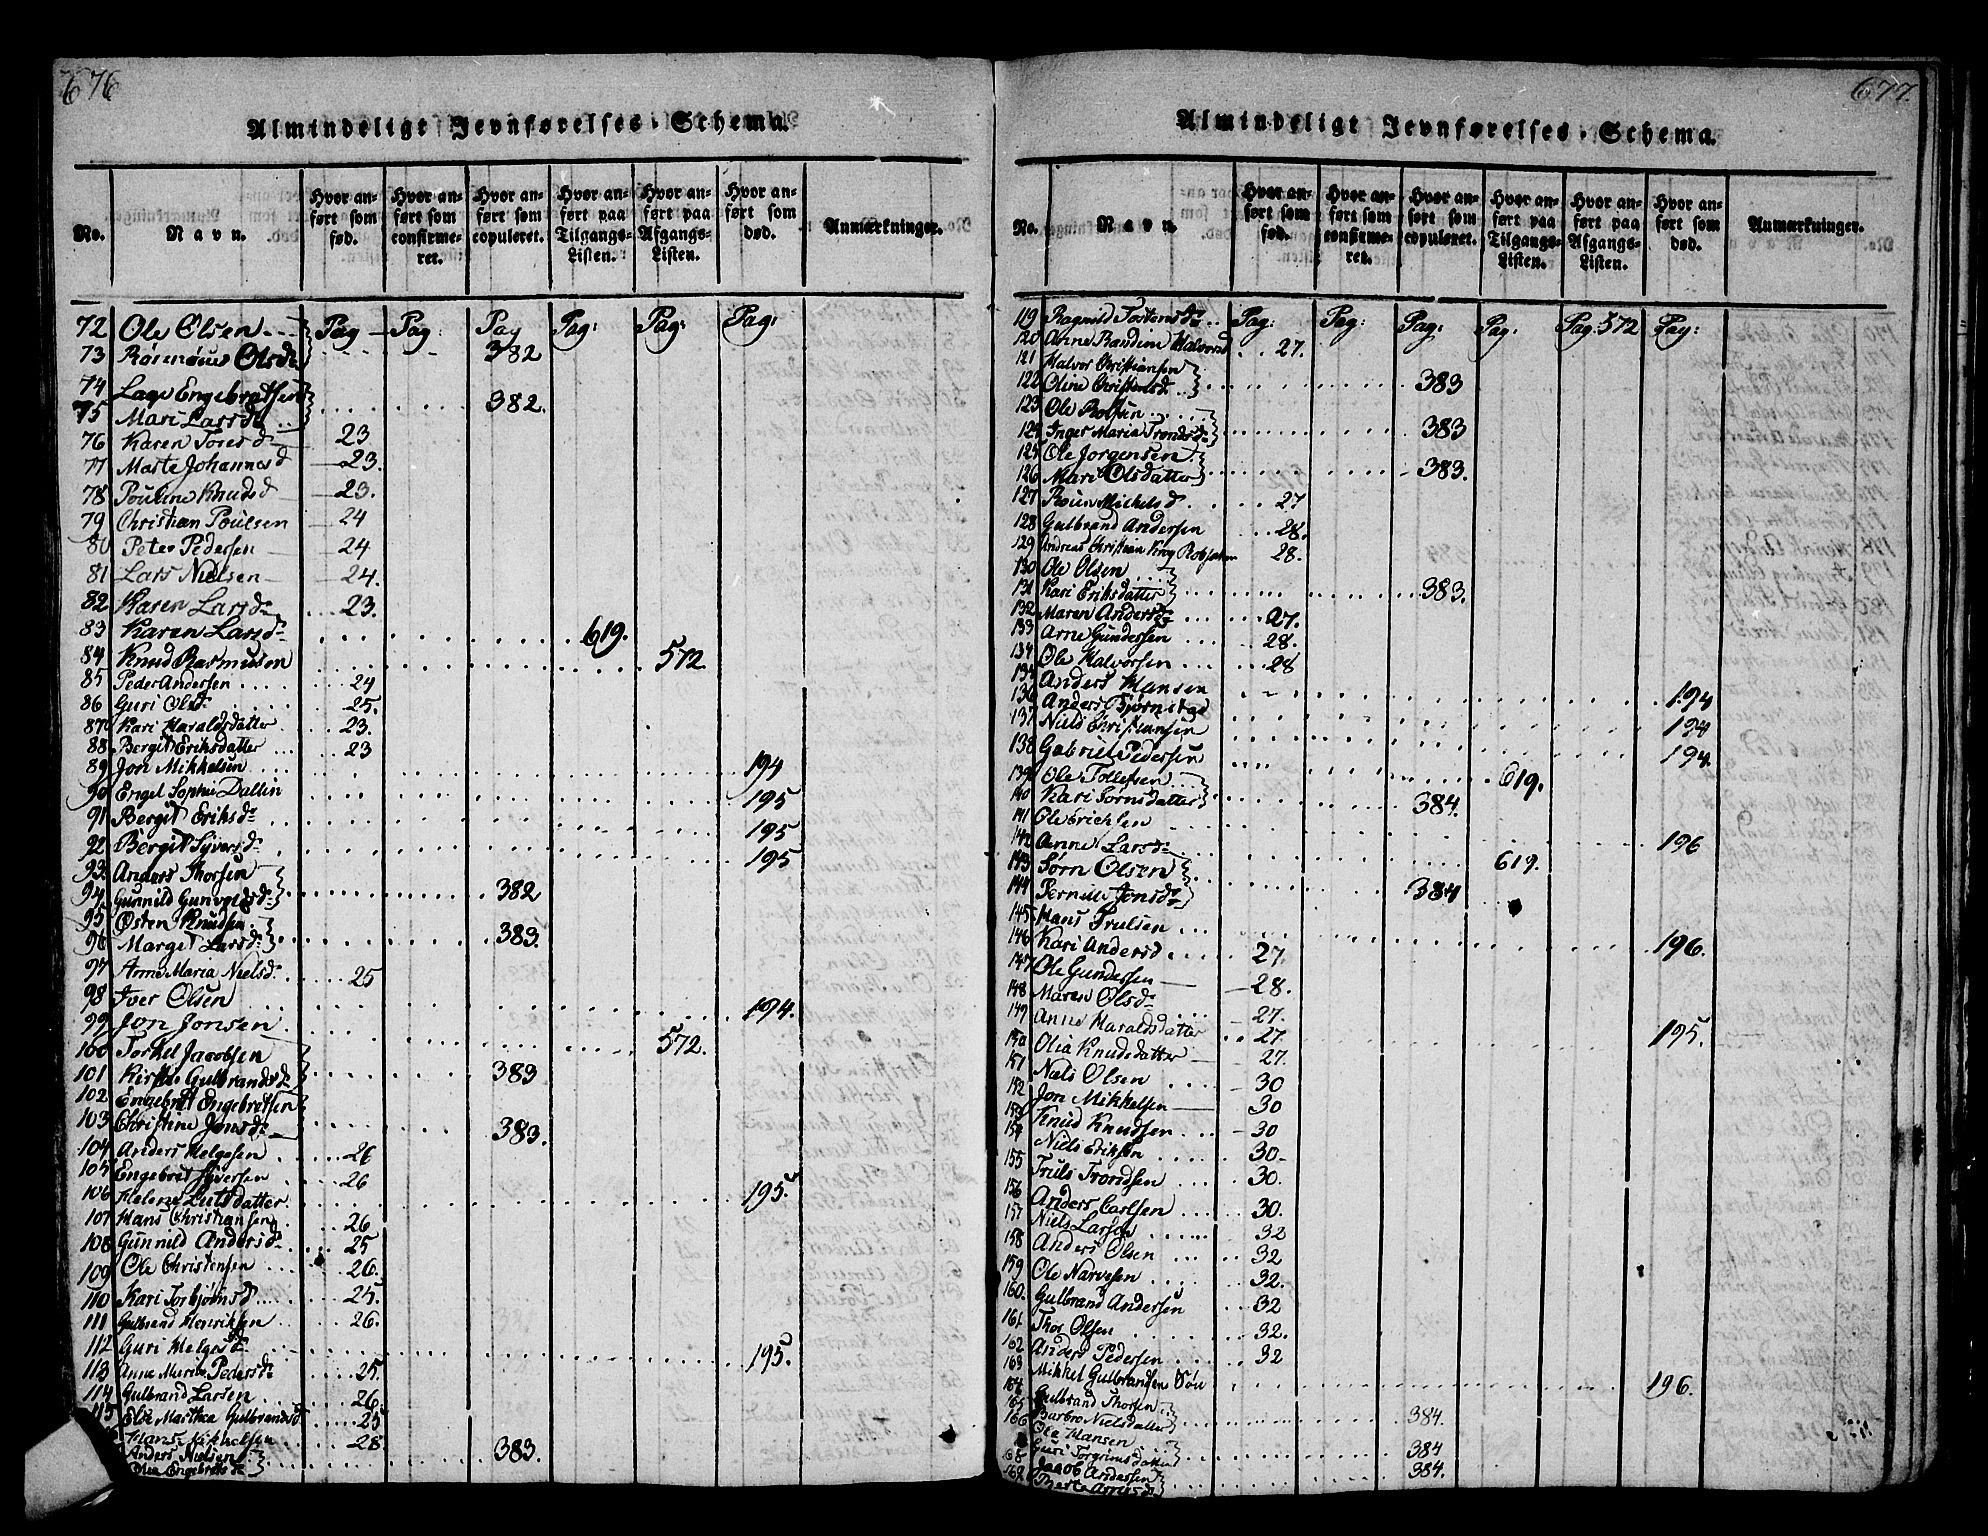 676
Almindeligt Jevnførelses-Schema.
No. Navn. Hvor anført som fød. Hvor anført som confirmeret. Hvor anført som copuleret. Hvor anført paa Tilgangs-Listen. Hvor anført paa Afgangs-Listen. Hvor anført som død. Anmærkninger.
72 Ole Olsen Pag Pag Pag Pag: Pag: Pag:
73 Olsd 382
74 Lage Engebretsen
75 Mari Larsd 382.
76 Karen Toresd 23
77 Marte Johannesd 23.
78 Pouline Knudsd 23.
79 Christian Poulsen 24
80 Peter Pedersen 24
81 Lars Nielsen 24.
82 Karen Larsd 23.
83 Karen Larsd 619.
84 Knud Rasmusen 572
85 Peder Andersen 24
86 Guri Olsd 25.
87 Kari Haraldsdatter 23.
88 Bergit Eriksdatter 23
89 Jon Mikkelsen 194
90 Engel Sophie Dallin 195
91 Bergit Eriksd 195
92 Bergit Syversd 195
93. Anders Thorsen
94 Gunnild Gunvaldsd 382
95 Østen Knudsen
96 Marget Larsd 383.
97 Anne Maria Nielsd. 25
98 Iver Olsen 194.
99 Jon Jonsen 572.
100 Torkel Jacobsen
101 Kirsti Gulbrandsd 383
102 Engebret Engebretsen
103 Christine Jonsd 383.
104 Anders Helgesen 26
105 Engebret Syversen 26
106 Helene datter 195.
107 Hans Christiansen 26
108 Gunnild Andersd 25
109 Ole Christensen 26.
110 Kari Torbjørnsd 25.
111 Gulbrand Henriksen 26.
112 Guri Helgesd 195.
113 Anne Marie Pedersd 25.
114 Gulbrand Larsen 26.
115 Else Marthea Gulbrandsd 25
Hans Mikkelsen 28
Anders Nielsen 383.
Engebretsd
677.
Almindeligt Jevnførelses-Schema.
No. Navn. Hvor anført som fød. Hvor anført som confirmeret. Hvor anført som copuleret. Hvor anført paa Tilgangs-Listen. Hvor anført paa Afgangs-Listen. Hvor anført som død. Anmærkninger.
119 Ragnild Tostensd Pag: Pag: Pag: Pag: Pag: 572 Pag:
120 Anne Randine Halvorsd 27.
121 Halvor Christiansen
122 Oline Christensd 383
123 Ole Rolfsen
124 Inger Maria Trondsd 383
125 Ole Jorgensen
126 Mari Olsdatter 383.
127 Michelsd 27
128 Gulbrand Andersen 28.
129 Andreas Christian 28.
130 Ole Olsen
131 Kari Eriksdatter 383.
132 Maren Andersd 27.
133 Arne Gundersen 28.
134 Ole Halvorsen 28
135 Anders Hansen 194
136 Anders 194
137 Niels Christiansen 194.
138 Gabriel Pedersen 619.
139 Ole Tollefsen
140 Kari Sørnsdatter 384.
141 Ole Erichsen 196
142 Anne Larsd 619.
143 Sørn Olsen
144 Pernille Jonsd 384
145 Hans Trulsen 196.
146 Kari Andersd 27.
147 Ole Gundersen 28.
148 Maren Olsd 27.
149 Anne Haraldsdatter 27. 195.
150 Olia Knudsdatter 27.
151 Niels Olsen 30
152 Jon Mikkelsen 30
153 Knud Knudsen 30
154 Niels Eriksen 30
155 Truls Trondsen 30.
156 Anders Carlsen 30.
157 Niels Larsen 32
158 Anders Olsen 32
159 Ole Narvesen 32.
160. Gulbrand Andersen 32
161. Thor Olsen 32.
162 Anders Pedersen 32
163 Mikkel Gulbrandsen Søn 196.
164 Gulbrand Thorsen
165 Barbro Nielsdatter 384.
166 Ole Hansen
Guri Torgrimsdatter 384
168 Jacob Andersen 384.
169